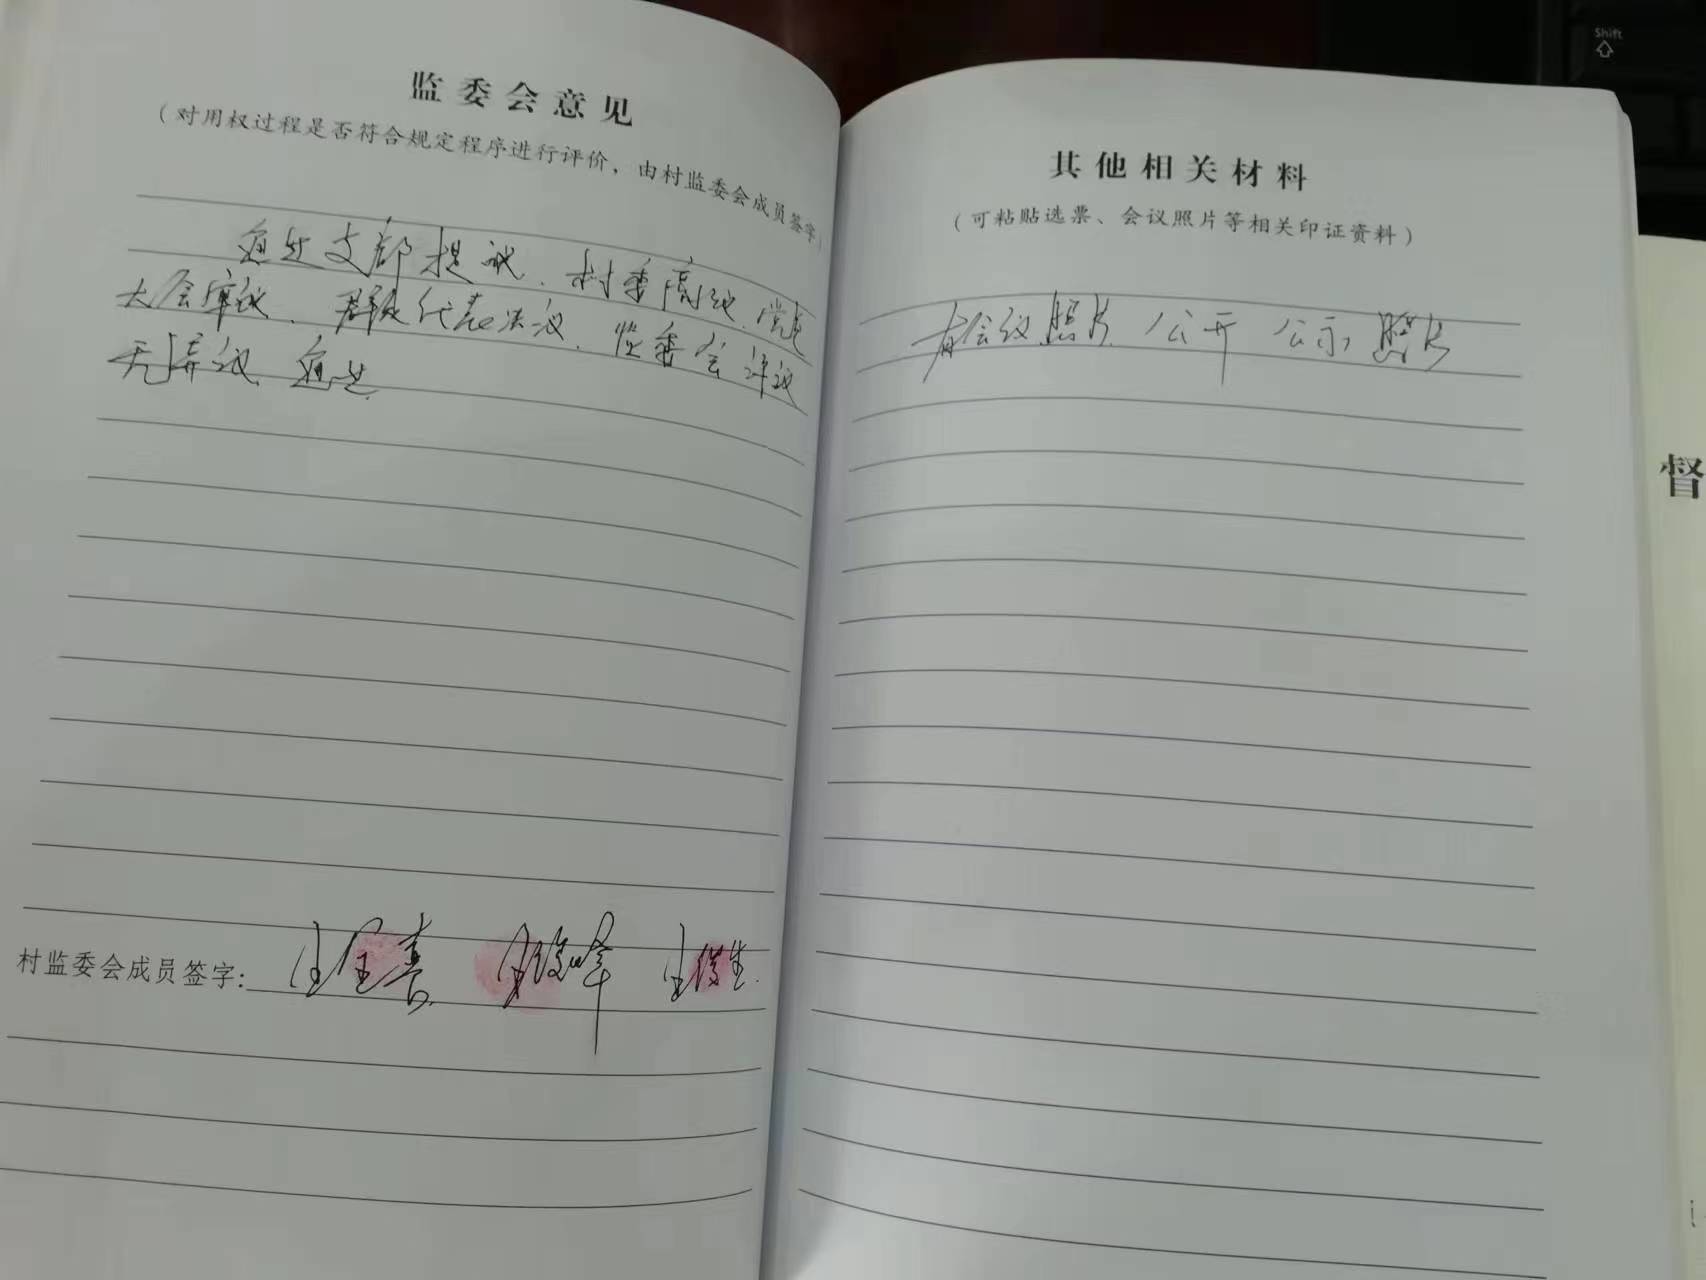 监委会意见
（对用权过程是否符合规定程序进行评价，由村监委会成员签字）
通过支部提议、村委商议、党员
大会审议、群众代表决议、监委会评议
无异议 通过
村监委会成员签字：
其他相关材料
（可粘贴选票、会议照片等相关印证资料）
有会议照片 公开 公示 照片
督
Shift